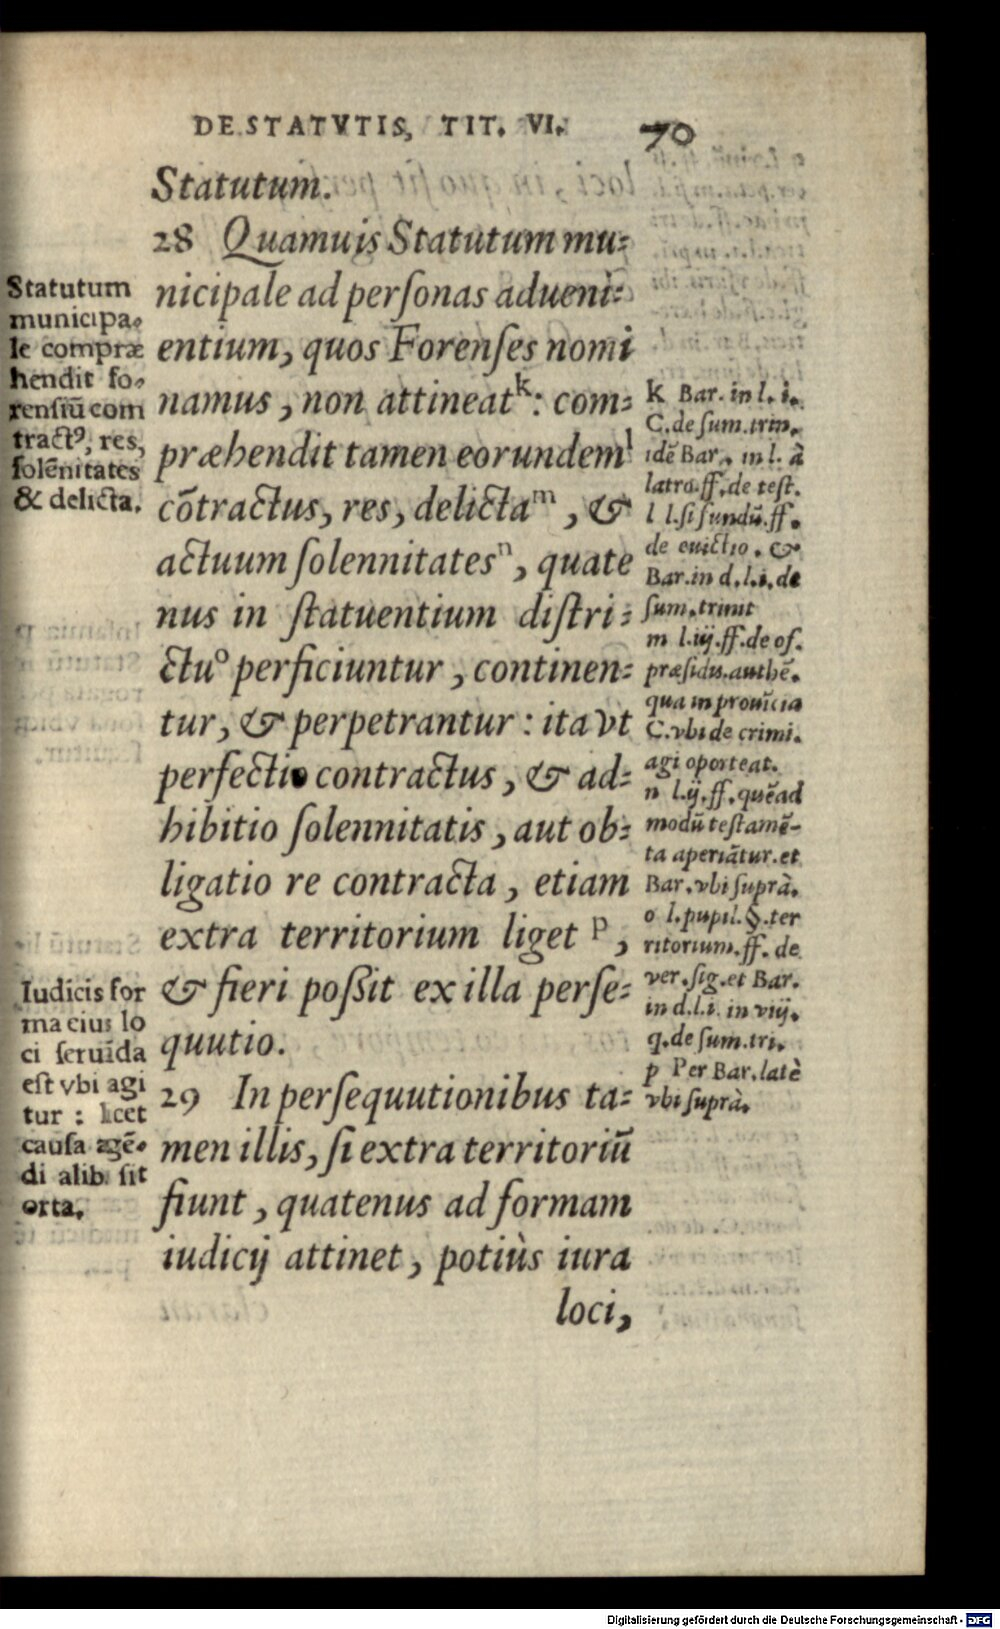 DE STATVTIS, TIT. VI. 70
Statutum.
28 Quamuis Statutum mu⸗
nicipale ad perſonas adueni⸗
entium, quos Forenſes nomi
namus, non attineatᵏ: com⸗
præhendit tamen eorundemˡ
cõtractus, res, delictaᵐ, &
actuum ſolennitatesⁿ, quate
nus in ſtatuentium diſtri⸗
ctuᵒ perficiuntur, continen⸗
tur, & perpetrantur: ita vt
perfectio contractus, & ad⸗
hibitio ſolennitatis, aut ob⸗
ligatio re contracta, etiam
extra territorium liget ᵖ,
& fieri poſsit ex illa perſe⸗
quutio.
29 In perſequutionibus ta⸗
men illis, ſi extra territoriũ
fiunt, quatenus ad formam
iudicij attinet, potiùs iura
loci,
Statutum
municipa⸗
le compræ
hendit fo⸗
renſiũ com
tractꝰ, res,
ſolẽnitates
& delicta.
Iudicis for
ma eius lo
ci ſeruãda
eſt vbi agi
tur: licet
cauſa agẽ⸗
di alib. ſit
orta.
k Bar. in l. i.
C. de ſum. trin.
idẽ Bar. in l. à
latro. ff. de teſt.
l l. ſi fundũ. ff.
de euictio. &
Bar. in d. l. i. de
ſum. trinit
m l. iij. ff. de of.
præſidis. authẽ.
qua in prouĩcia
C. vbi de crimi.
agi oporteat.
n l. ij. ff. quẽad
modũ teſtamẽ-
ta aperiãtur. et
Bar. vbi ſuprà.
o l. pupil. §. ter
ritorium. ff. de
ver. ſig. et Bar.
in d. l. i. in viij.
q. de ſum. tri.
p Per Bar. latè
vbi ſuprà.
Digitalisierung gefördert durch die Deutsche Forschungsgemeinschaft - DFG